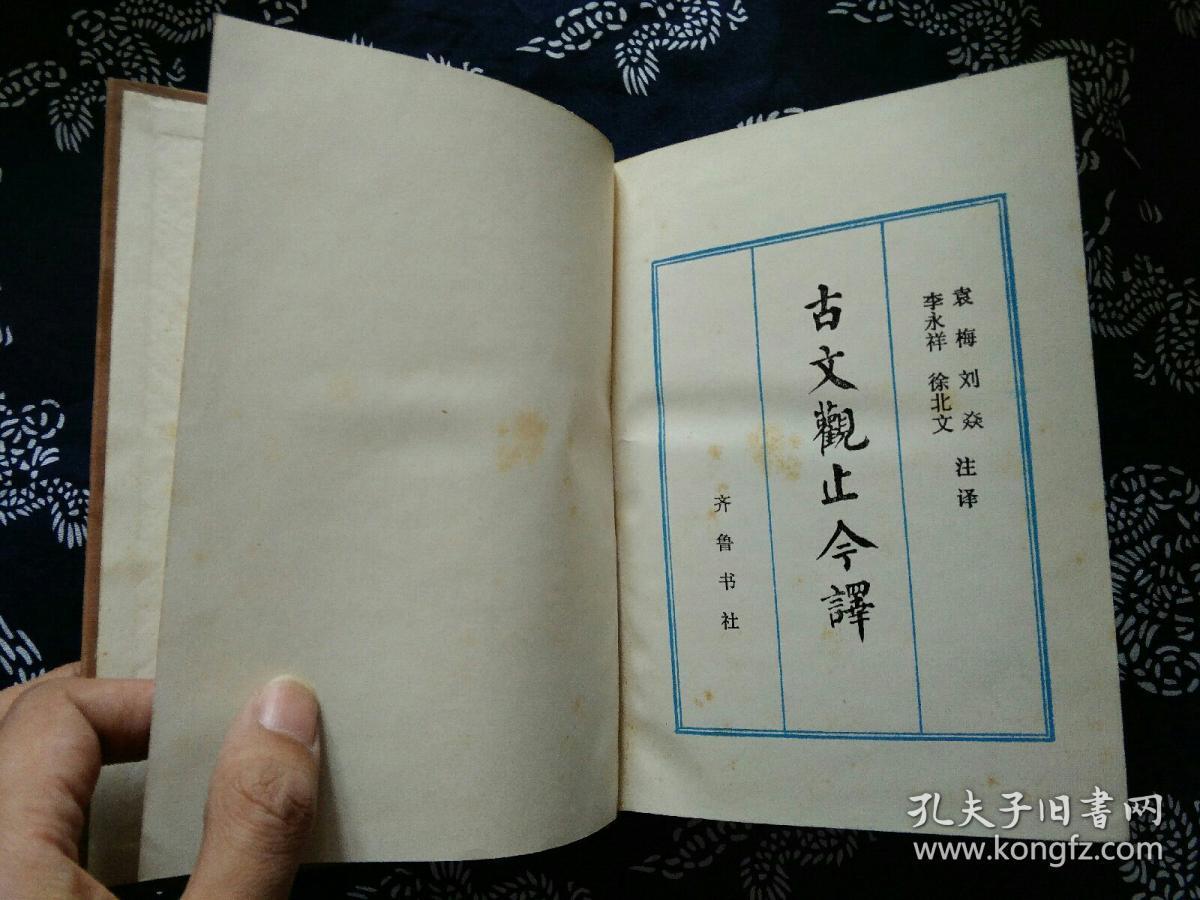 袁梅 刘焱 注译
李永祥 徐北文
古文觀止今譯
齐鲁书社
孔夫子旧书网
www.kongfz.com